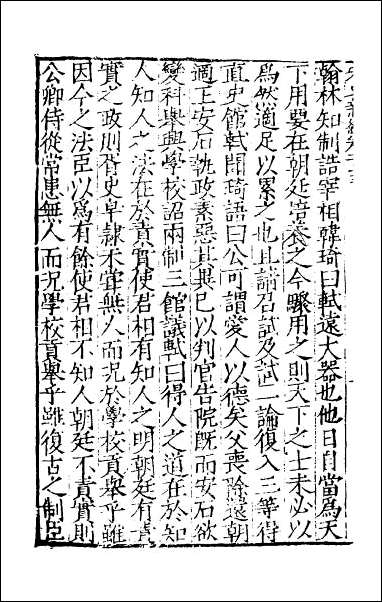 翰林知制誥宰相韓琦曰軾遠大器也他日自當爲天
下用要在朝廷培養之今驟用之則天下之士未必以
爲然適足以累之也且請召試及試二論復入三等得
直史館軾聞琦語曰公可謂愛人以德矣父喪除還朝
適王安石執政素惡其異己以判官告院旣而安石欲
變科舉興學校詔兩制三館議軾曰得人之道在於知
人知人之法在於責實使君相有知人之明朝廷有責
實之政則胥史皁隸未嘗無人而况於學校貢舉乎雖
因今之法臣以爲有餘使君相不知人朝廷不責實則
公卿侍從常患無人而况學校貢舉乎雖復古之制臣